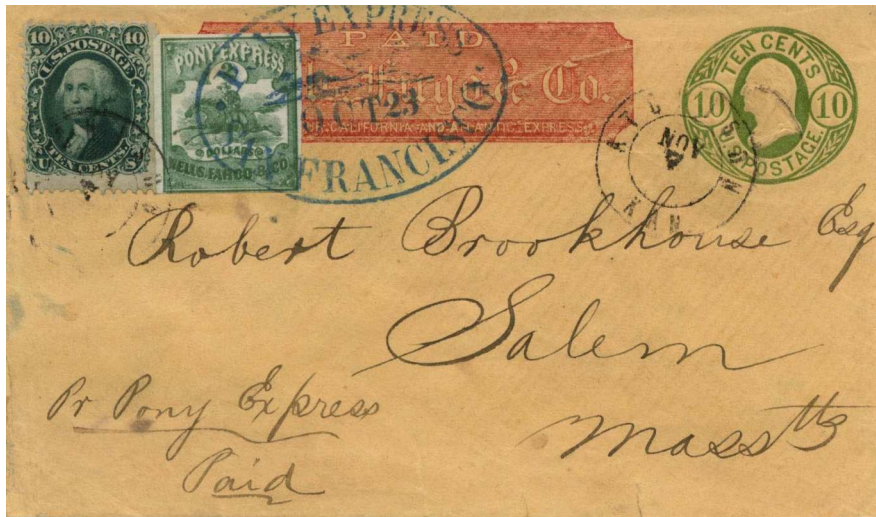 10 10
U.S. POSTAGE
TEN CENTS
U S
PONY EXPRESS
2 DOLLARS 2
WELLS, FARGO & CO.
PONY EXPRESS
OCT 23
SAN FRANCISCO.
PAID
Wells, Fargo & Co.
OVR. CALIFORNIA AND ATLANTIC EXPRESS
TEN CENTS
10 10
U.S. POSTAGE.
KAN
NOV
4
Robert Brookhouse Esq
Salem
Masstts
Pr Pony Express
Paid